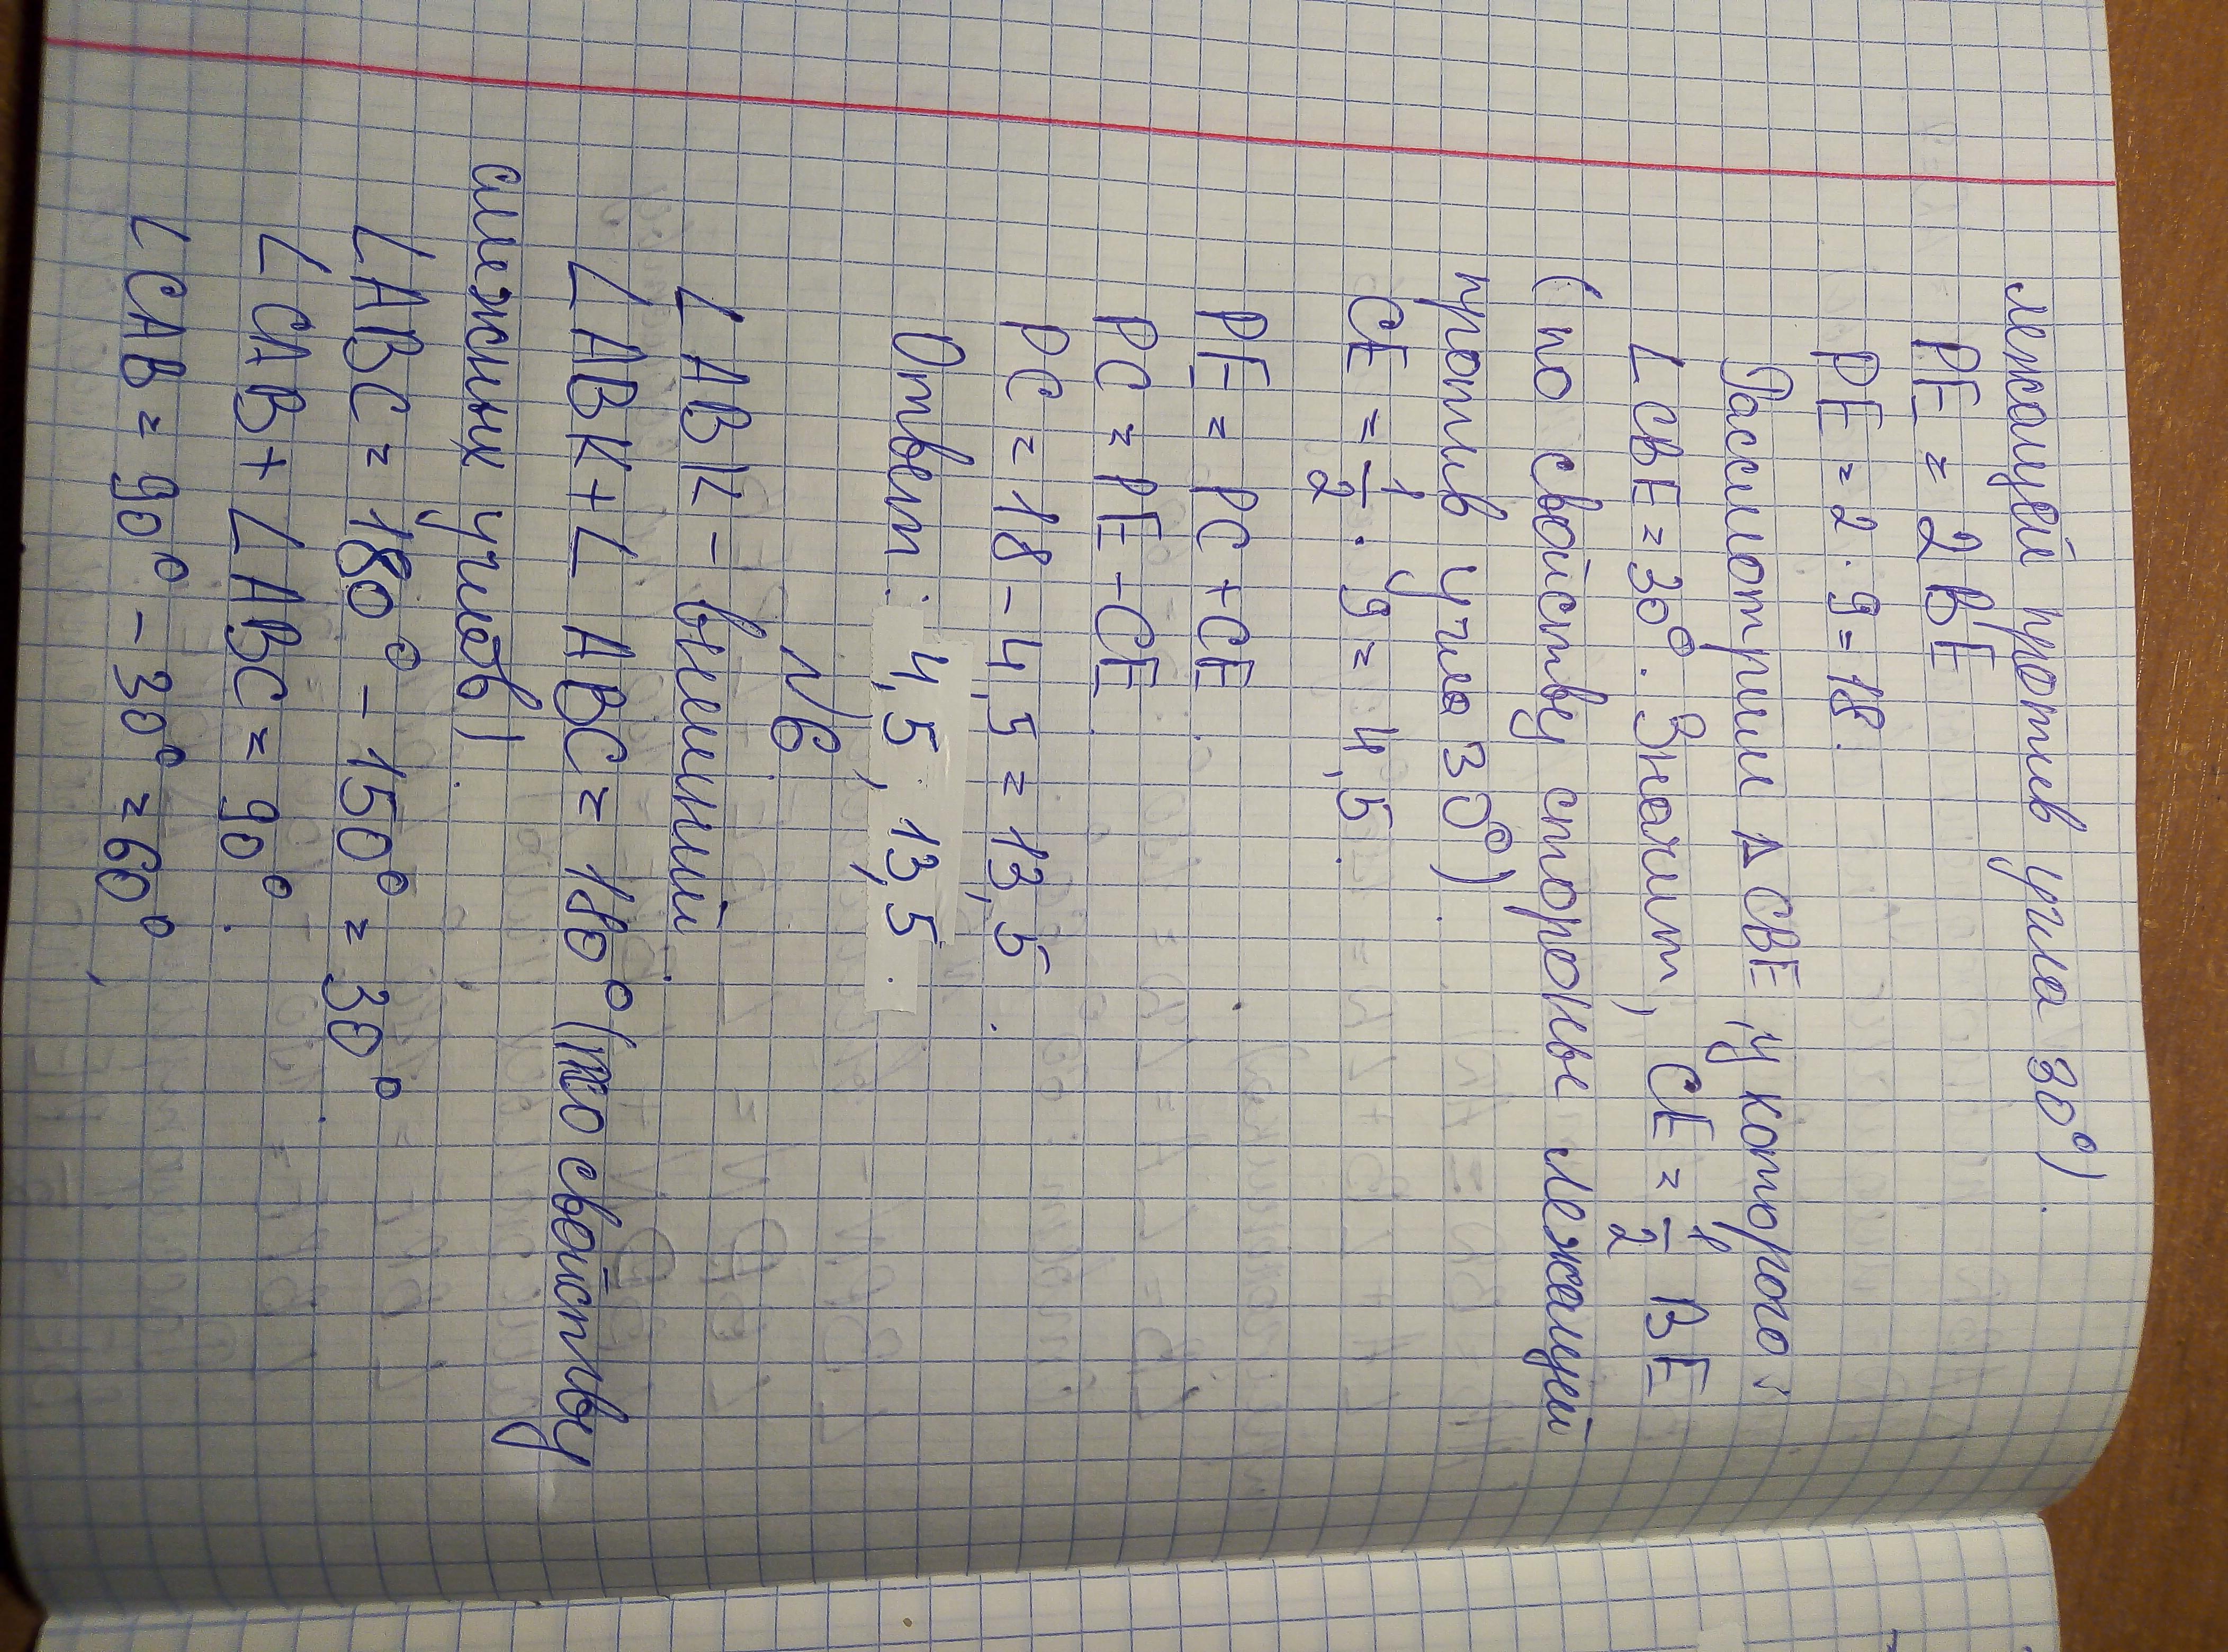 лежащей против угла 30°).
PE = 2BE
PE = 2 · 9 = 18.
Рассмотрим Δ CBE, у которого:
∠ CBE = 30°. Значит, CE = 1/2 BE
(по свойству стороны лежащей
против угла 30°).
CE = 1/2 · 9 = 4,5.
PE = PC + CE.
PC = PE - CE.
PC = 18 - 4,5 = 13,5.
Ответ: 4,5, 13,5.
№6
∠ ABK - внешний.
∠ ABK + ∠ ABC = 180° (по свойству
смежных углов).
∠ABC = 180° - 150° = 30°.
∠ CAB + ∠ ABC = 90°.
∠ CAB = 90° - 30° = 60°,